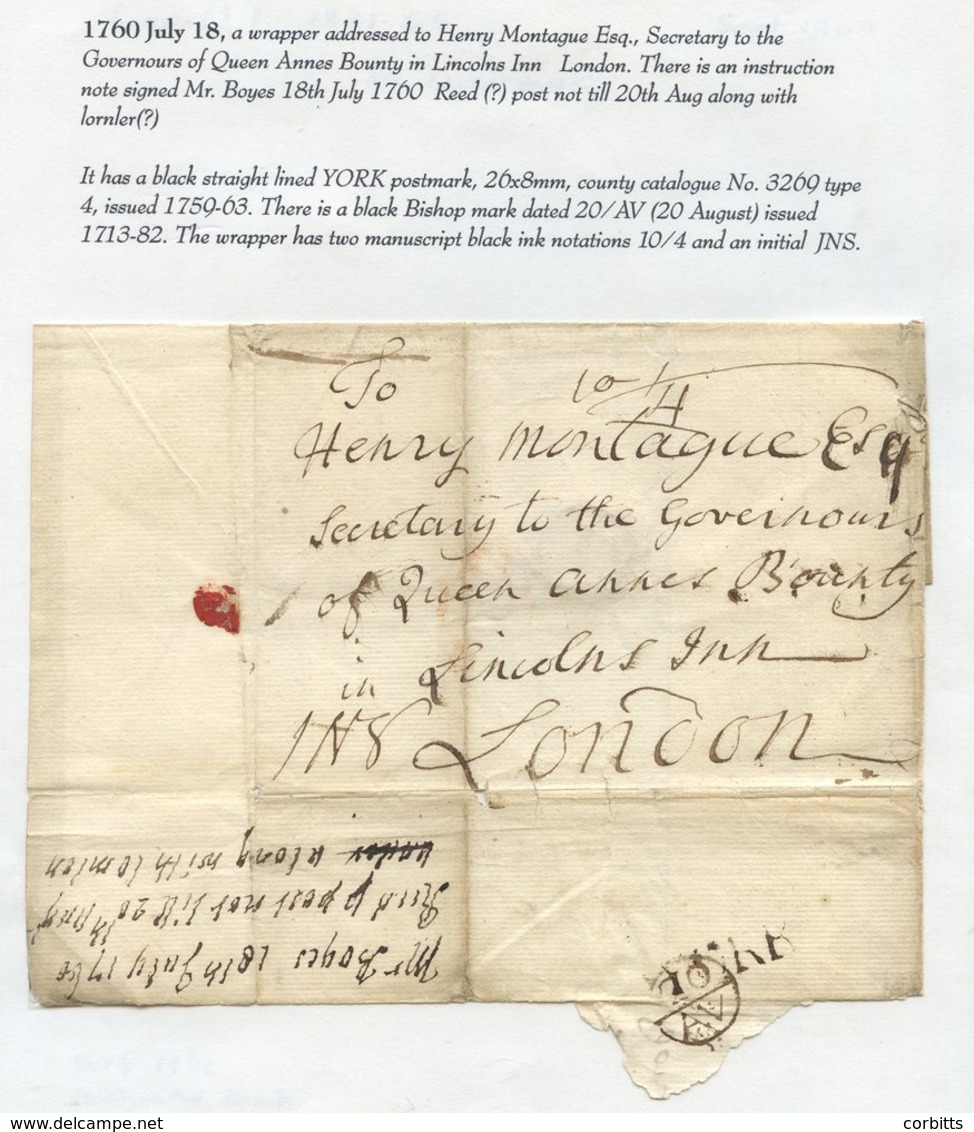 1760 July 18, a wrapper addressed to Henry Montague Esq., Secretary to the
Governours of Queen Annes Bounty in Lincolns Inn London. There is an instruction
note signed Mr. Boyes 18th July 1760 Reed (?) post not till 20th Aug along with
lornler(?)
It has a black straight lined YORK postmark, 26x8mm, county catalogue No. 3269 type
4, issued 1759-63. There is a black Bishop mark dated 20/AV (20 August) issued
1713-82. The wrapper has two manuscript black ink notations 10/4 and an initial JNS.
To
10/4
Henry Montague Esq
Secretary to the Governours
of Queen Annes Bounty
in Lincolns Inn
London
Mr Boyes 18th July 1760
post not till 20th Augt
along with
YORK
AV
www.delcampe.net
corbitts